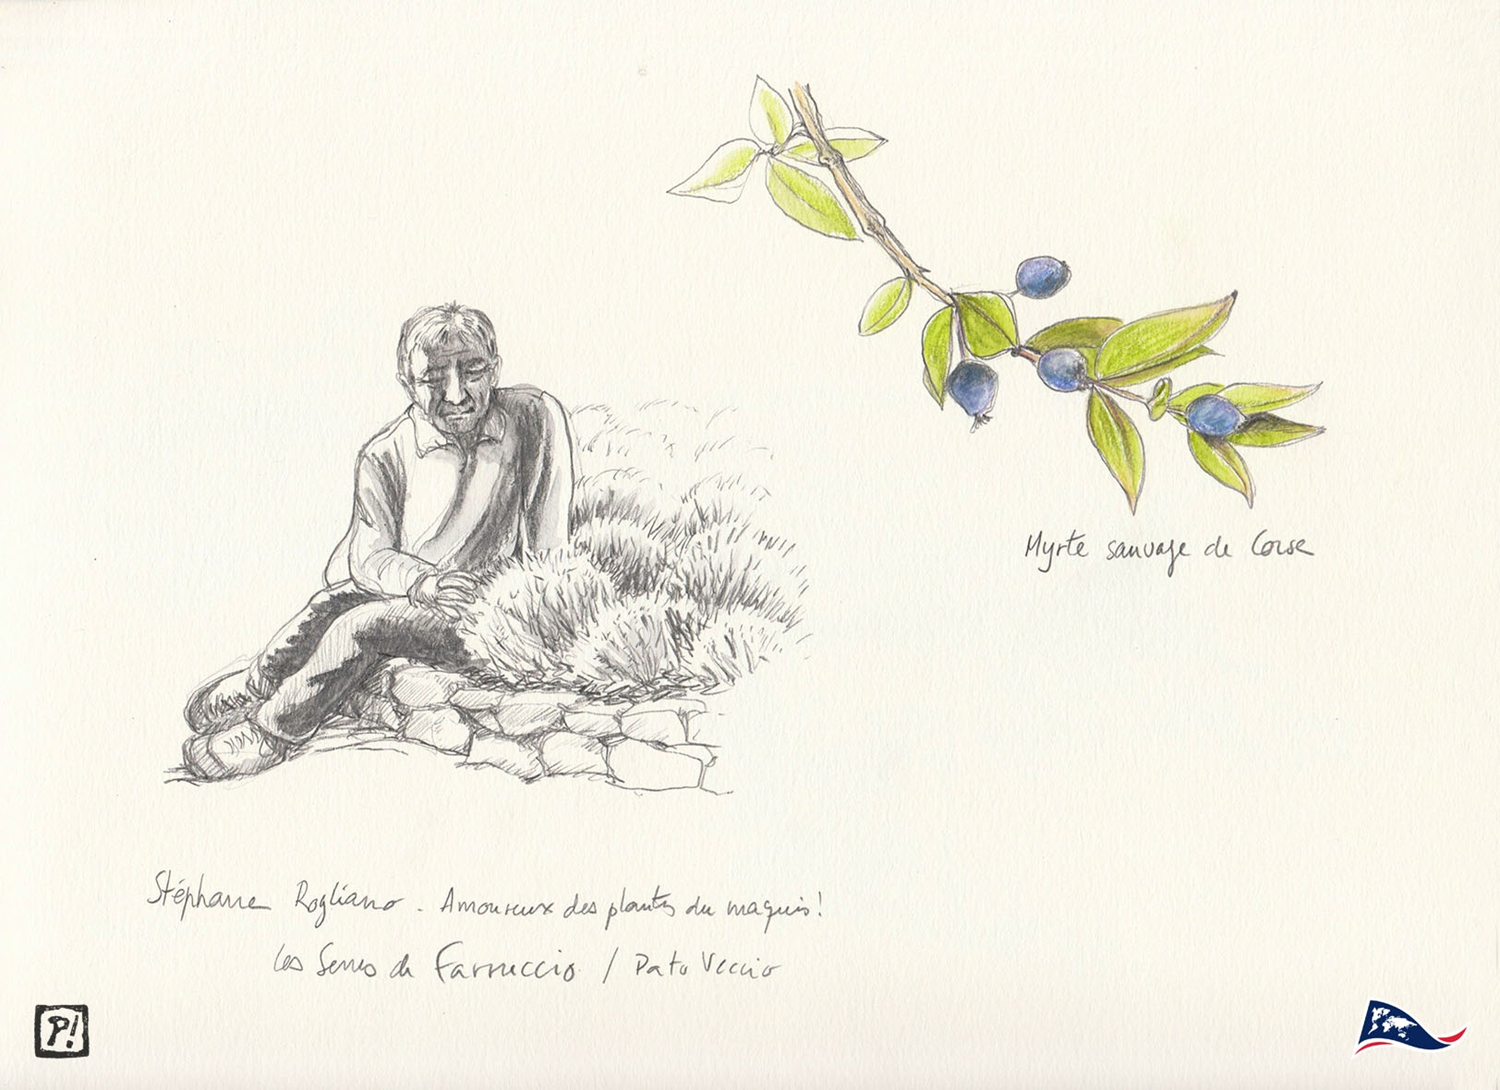 Myrte sauvage de Corse
Stéphane Rogliano - Amoureux des plantes du maquis!
Les Serres de Farruccio / Patu Veccio
P!